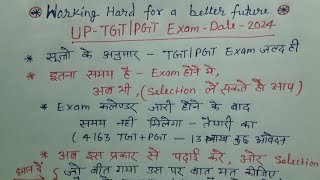 Working Hard for a better future
UP-TGT/PGT Exam-Date-2024
* सूत्रों के अनुसार - TGT/PGT Exam जल्द ही
* इतना समय है - Exam होने में,
अब भी, (Selection ले सकते हो आप)
* Exam कैलेण्डर जारी होने के बाद
समय नहीं मिलेगा - तैयारी का
(4163 TGT+PGT - 13 लाख कुछ आवेदन
* अब इस प्रकार से पढ़ाई करें, और Selection
ध्यान दें जो बीत गया उस पर बात मत कीजिए